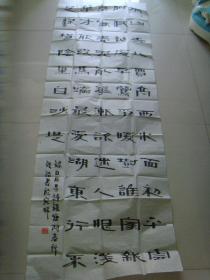 孤山寺北賈亭西水面初平雲
脚低幾處早鶯爭暖樹誰家新
燕啄春泥亂花漸欲迷人眼淺
草才能沒馬蹄最愛湖東行不
足綠楊陰裏白沙堤
錄白居易詩錢塘湖春行